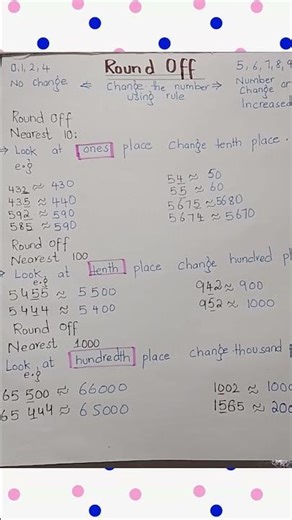 Round Off
0,1,2,4
5,6,7,8,9
No change ⇐ Change the number ⇒ Number
using rule
Change
Increased
Round Off
Nearest 10:
→ Look at ones place Change tenth place.
e.g
432 ≈ 430
54 ≈ 50
435 ≈ 440
55 ≈ 60
592 ≈ 590
5675 ≈ 5680
585 ≈ 590
5674 ≈ 5670
Round Off
Nearest 100
→ Look at tenth place change hundred
e.g
5455 ≈ 5500
942 ≈ 900
5444 ≈ 5400
952 ≈ 1000
Round Off
Nearest 1000
Look at hundredth place change thousand
e.g
65 500 ≈ 66000
1002 ≈ 1000
65 444 ≈ 65000
1565 ≈ 200